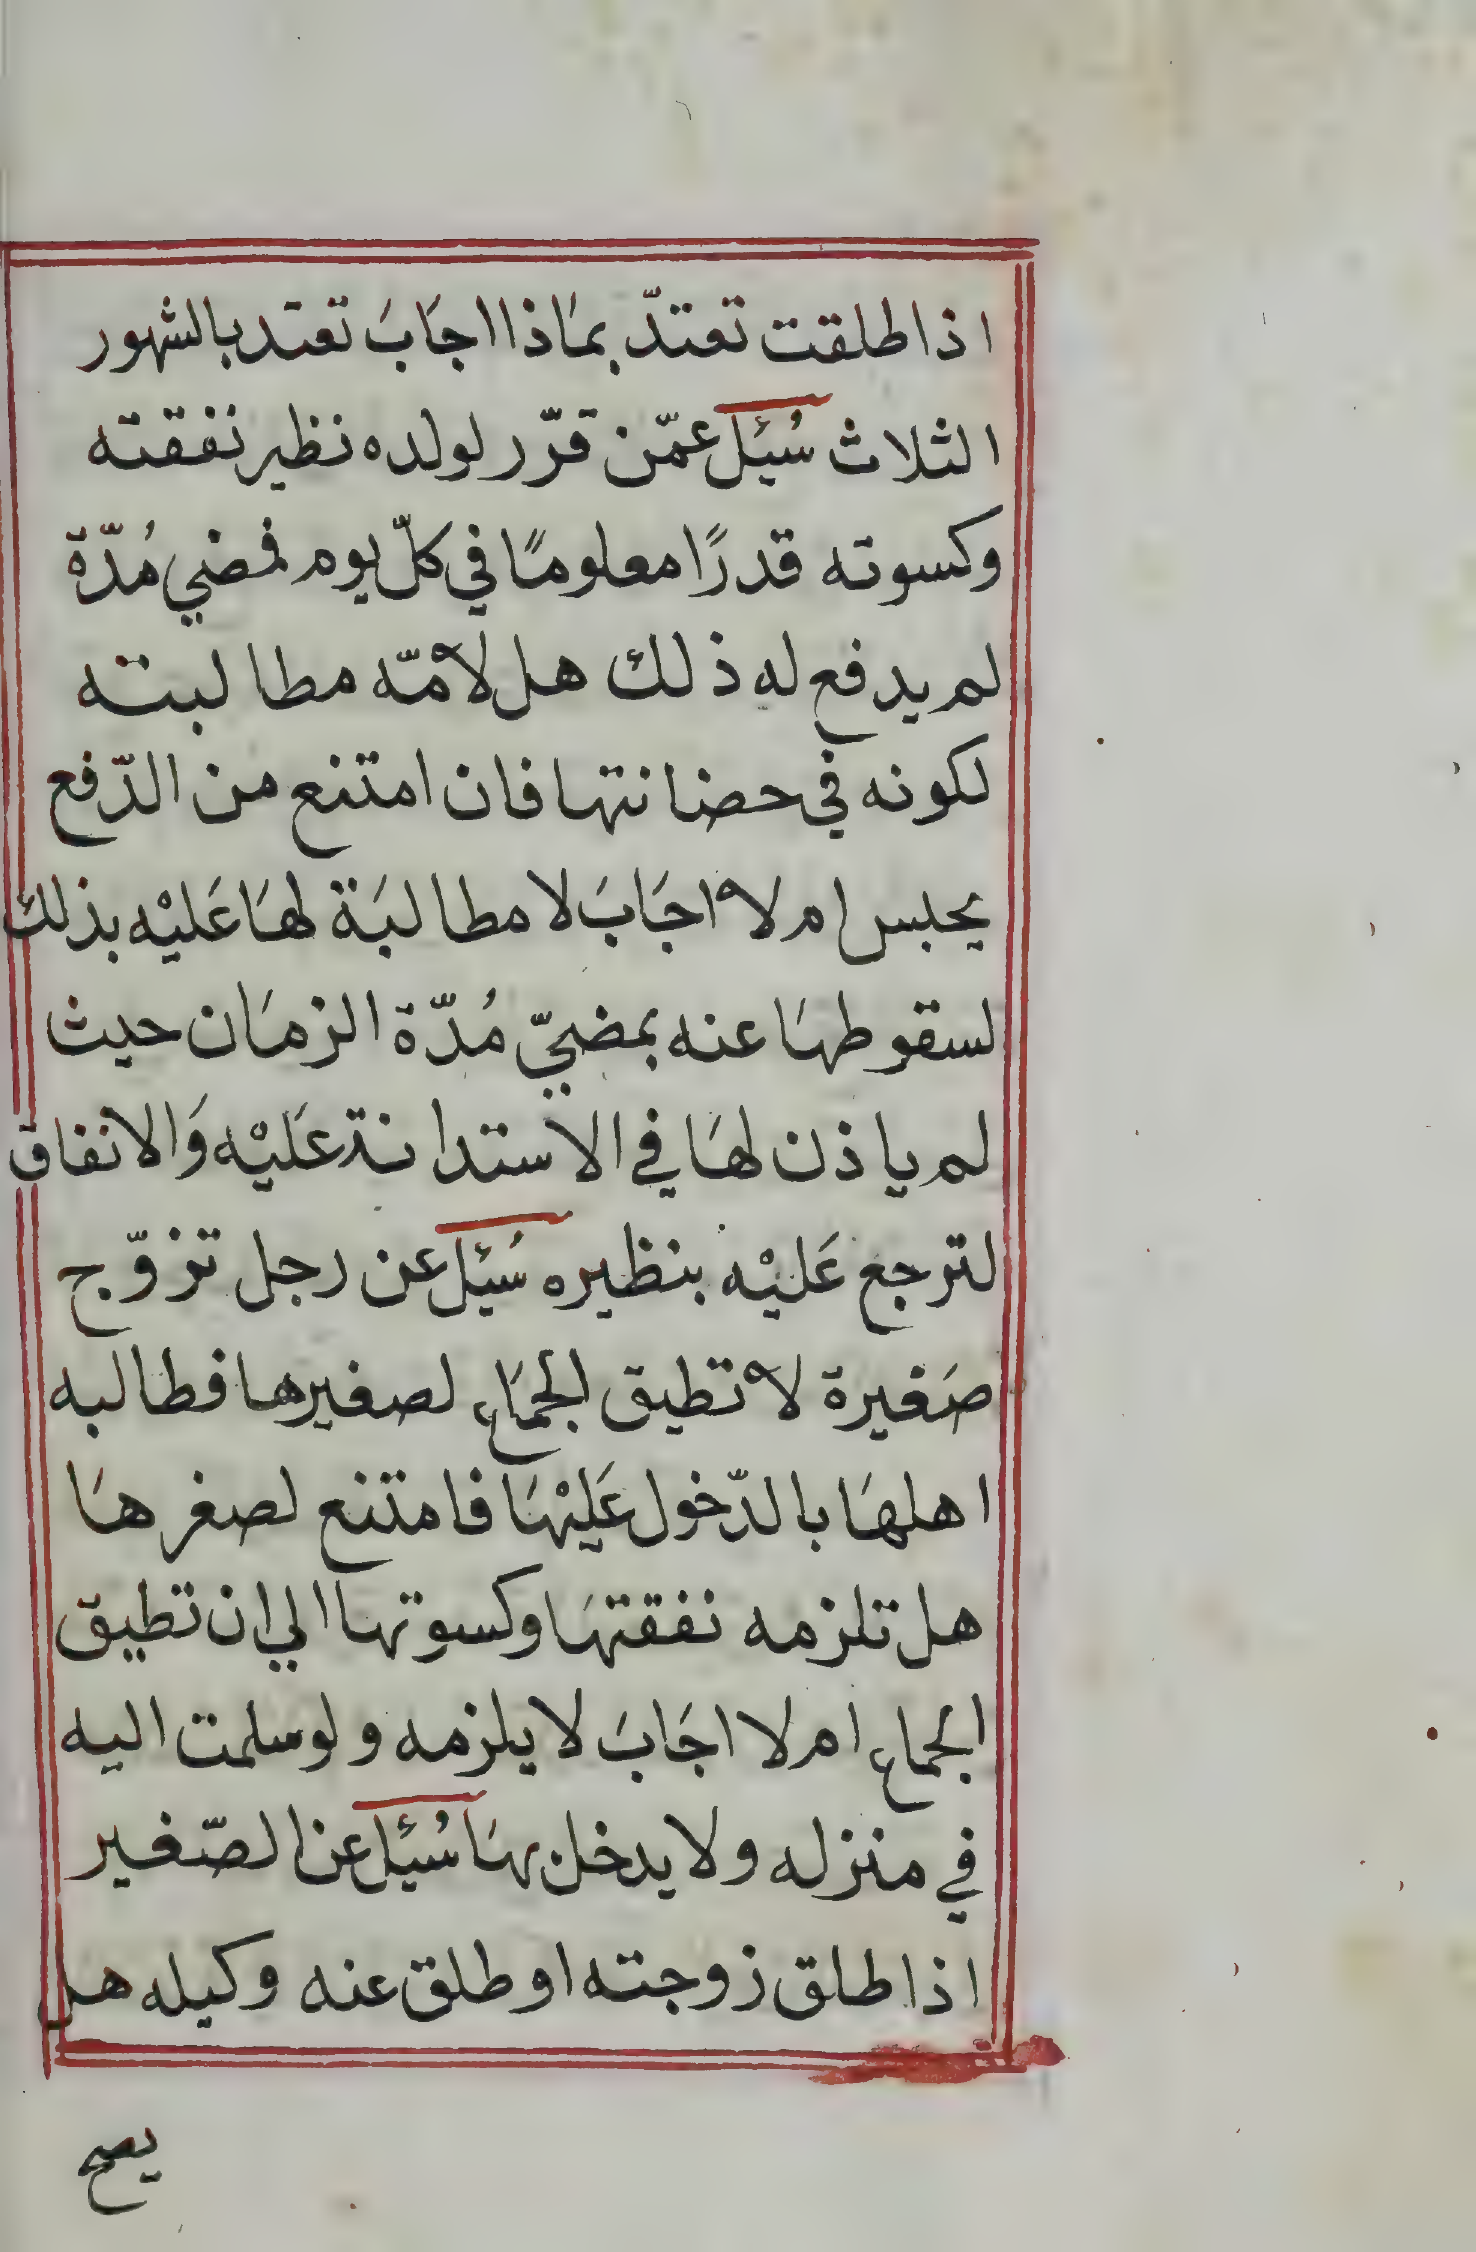 اذا طلقت تعتدّ بمَاذا اجَابَ تعتد بالشهور
الثلاث سُئِل عمّن قرّر لولده نظير نفقته
وكسوته قدرًا معلومًا في كلّ يوم فمضي مُدّة
لم يدفع له ذلك هل لأمّه مطالبته
لكونه في حضانتها فان امتنع من الدّفع
يحبس ام لا اجَابَ لا مطالبَة لهَا عَليْه بذلك
لسقوطهَا عنه بمضيّ مُدّة الزمَان حيث
لم ياذن لهَا في الاستدانة عَليْه وَالانفاق
لترجع عَليْه بنظيره سُئِل عن رجل تزوّج
صَغيرة لا تطيق الجمَاع لصغيرها فطالبه
اهلهَا بالدّخول عَليْهَا فامتنع لصغرهَا
هل تلزمه نفقتهَا وكسوتها الي ان تطيق
الجماع ام لا اجَابَ لا يلزمه ولو سلمت اليه
في منزله ولا يدخل بهَا سُئِل عن الصّغير
اذا طلق زوجته او طلق عنه وكيله هل
يصح